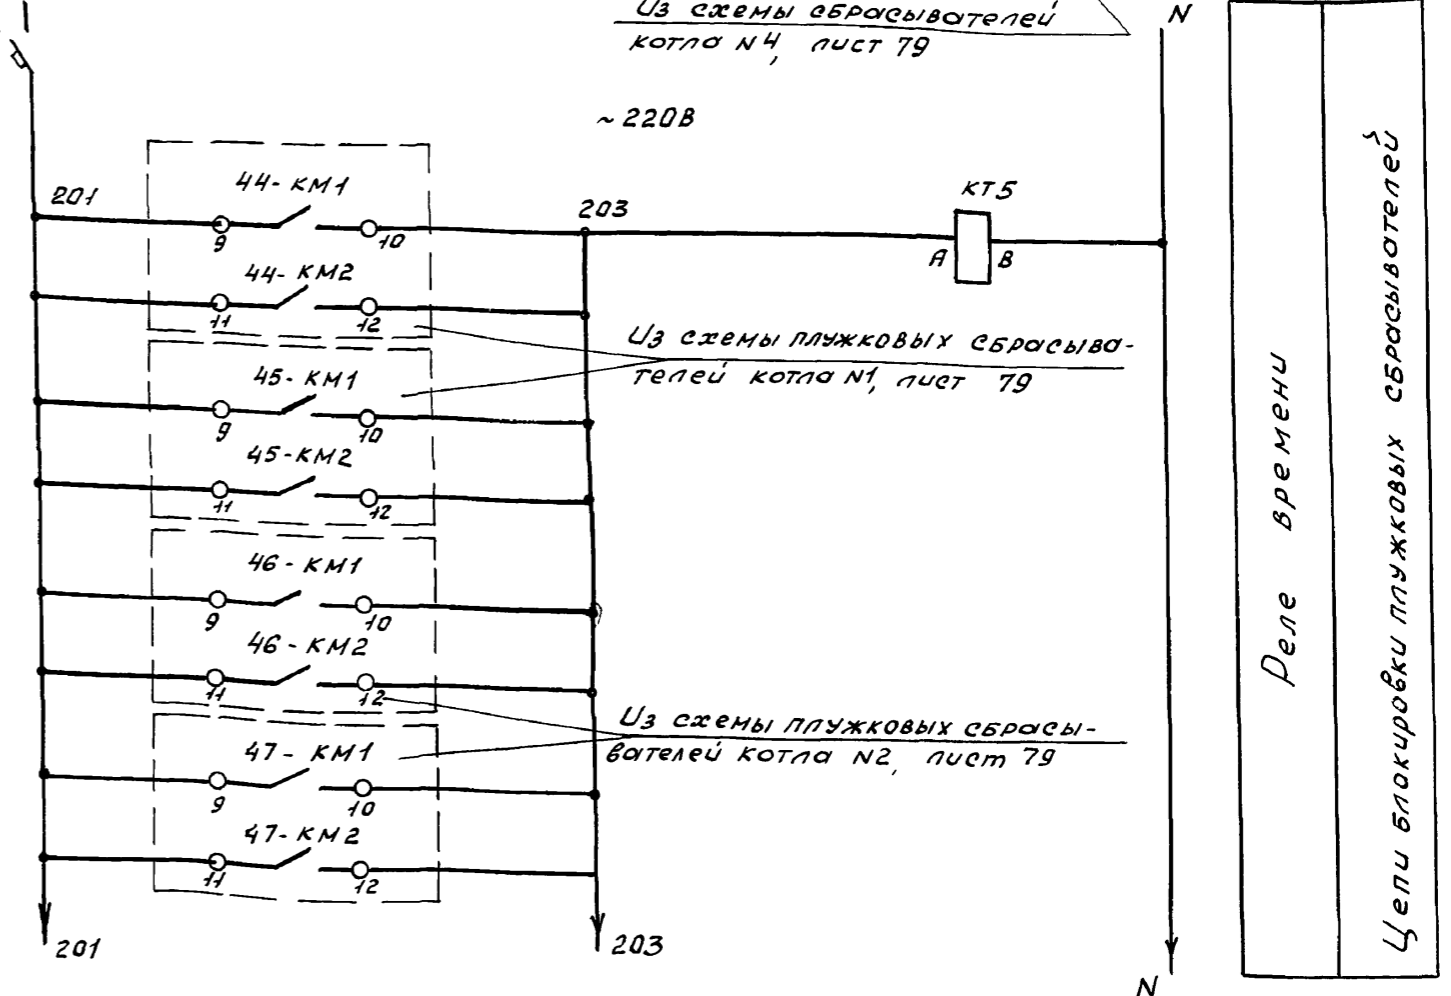 Из схемы сбрасывателей
котла N4, лист 79
N
~220В
201
44-КМ1
9
10
203
КТ5
А
В
44-КМ2
11
12
Из схемы плужковых сбрасыва-
телей котла N1, лист 79
45-КМ1
9
10
45-КМ2
11
12
46-КМ1
9
10
46-КМ2
11
12
Из схемы плужковых сбрасы-
вателей котла N2, лист 79
47-КМ1
9
10
47-КМ2
11
12
201
203
N
Реле времени
Цепи блокировки плужковых сбрасывателей